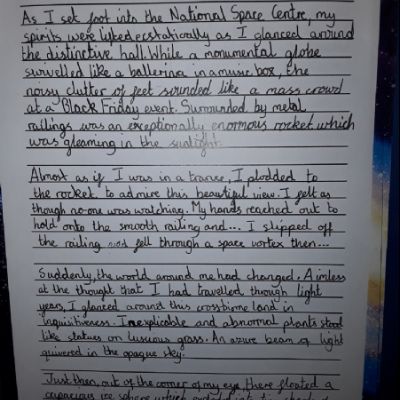 As I set foot into the National Space Centre, my
spirits were lifted ecstatically as I glanced around
the distinctive hall. While a monumental globe
swivelled like a ballerina in a music box, the
noisy clutter of feet sounded like a mass crowd
at a Black Friday event. Surrounded by metal
railings was an exceptionally enormous rocket which
was gleaming in the sunlight.
Almost as if I was in a trance, I plodded to
the rocket to admire this beautiful view. I felt as
though no-one was watching. My hands reached out to
hold onto the smooth railing and... I slipped off
the railing and fell through a space vortex then...
Suddenly, the world around me had changed. Airless
at the thought that I had travelled through light
years, I glanced around this in
inquisitiveness. Inexplicable and abnormal plants stood
like statues on luscious grass. An azure beam of light
quivered in the opaque sky.
Just then, out of the corner of my eye, there floated a
capacious ice sphere which